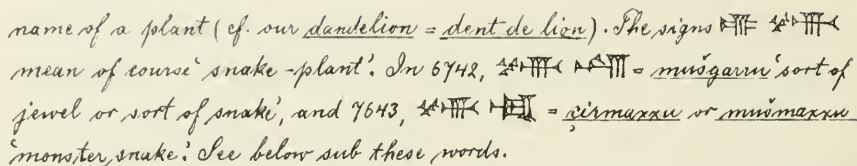 name of a plant (cf. our dandelion = dent de lion). The signs
mean of course 'snake-plant'. In 6742, = mušgarru 'sort of
jewel or sort of snake', and 7643, = çirmaxxu or mušmaxxu
'monster snake'. See below sub these words.